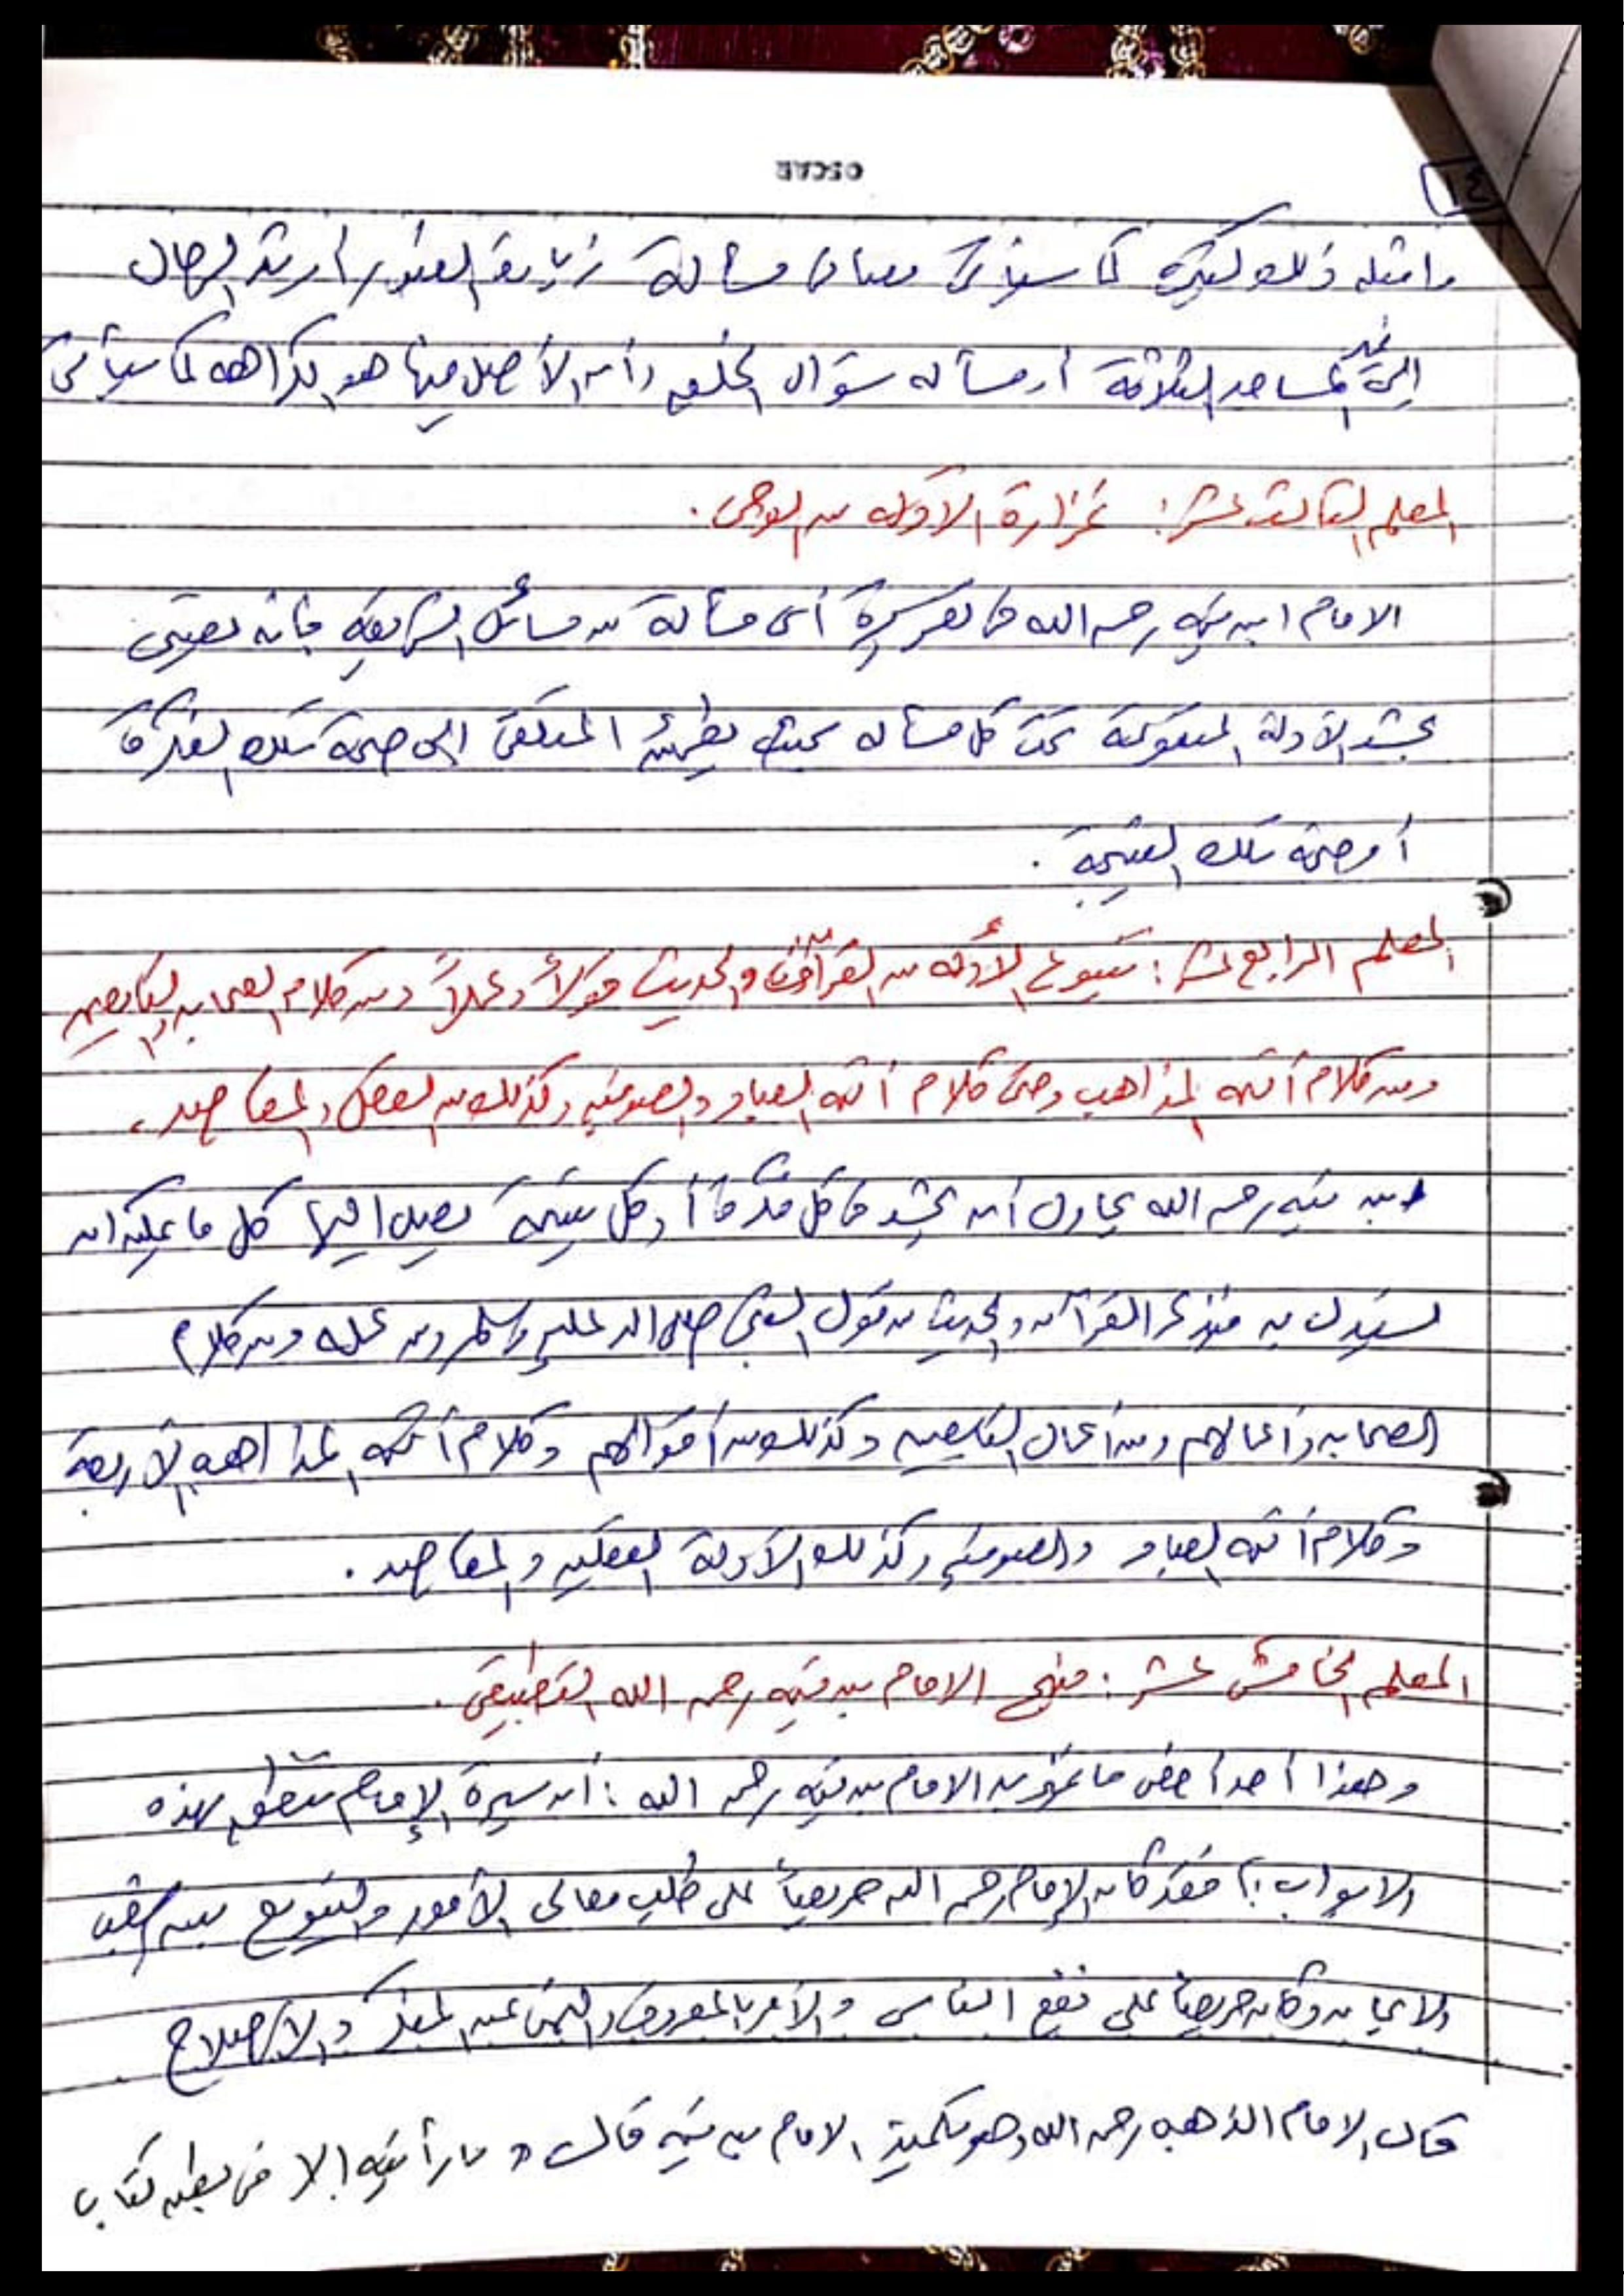 OSCAR
وامثلة ذلك كثيرة كما سيأتي معنا في مسألة زيارة القبور أو شد الرحال
إلى غير المساجد الثلاثة أو مسألة سؤال الخلق وأن الأصل فيها هو الكراهة كما سيأتي
المعلم الثالث عشر: غزارة الأدلة من الوحي.
الامام ابن تيمية رحمه الله في تقريره أي مسألة من مسائل الشريعة فإنه يعتني
بحشد الأدلة المتنوعة تحت كل مسألة بحيث يطمئن المتلقي إلى صحة تلك المقدمة
أو صحة تلك النتيجة.
المعلم الرابع عشر: تنوع الأدلة من القرآن والحديث قولاً وعملاً ومن كلام الصحابة والتابعين
ومن كلام أئمة المذاهب وحتى كلام أئمة العباد والصوفية وكذلك من العقل والمقاصد.
ابن تيمية رحمه الله يحاول أن يحشد في كل مقدمة أو كل نتيجة يصل إليها كل ما يمكن ان
يستدل به فيذكر القرآن والحديث من قول النبي صلى الله عليه وسلم ومن عمله ومن كلام
الصحابة وأعمالهم ومن أعمال التابعين وكذلك من أقوالهم وكلام أئمة المذاهب الأربعة
وكلام أئمة العباد والصوفية وكذلك الأدلة العقلية والمقاصد.
المعلم الخامس عشر: منهج الامام بن تيمية رحمه الله التطبيقي.
وهذا أحد أخص ما تميز به الامام بن تيمية رحمه الله: أن سيرة الإمام تنطق بهذه
الابواب؛ فقد كان الإمام رحمه الله حريصاً على طلب معالي الأمور والتنويع بين شعب
الايمان وكان حريصاً على نفع الناس والأمر بالمعروف والنهي عن المنكر والإصلاح
قال الامام الذهبي رحمه الله وهو تلميذ الامام بن تيمية قال " ما رأيته إلا في بطن كتاب